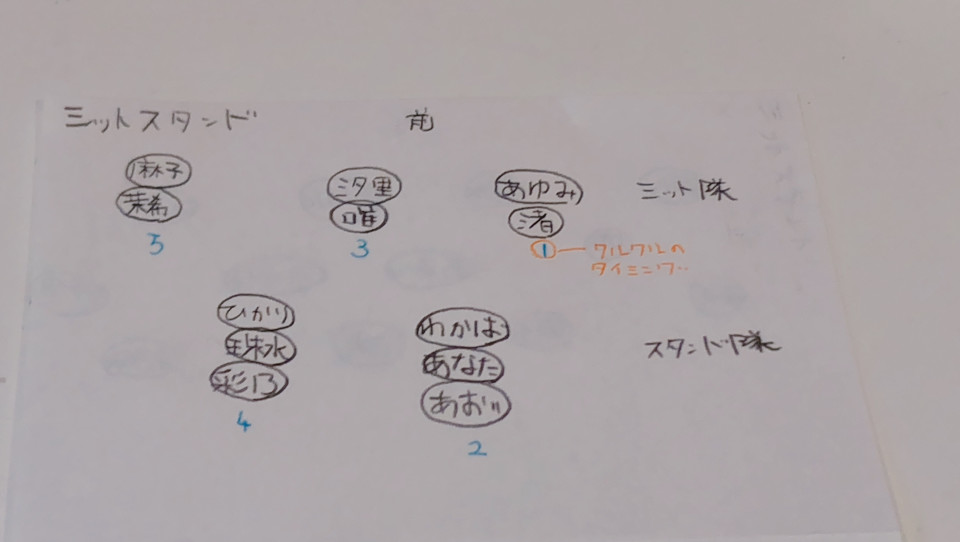 ミットスタンド 前
麻子 汐里 あゆみ ミット隊
茉希 唯 渚
5 3 ① クルクルの
タイミング..
ひかり わかば
珠水 あなた スタンド隊
彩乃 あおい
4 2